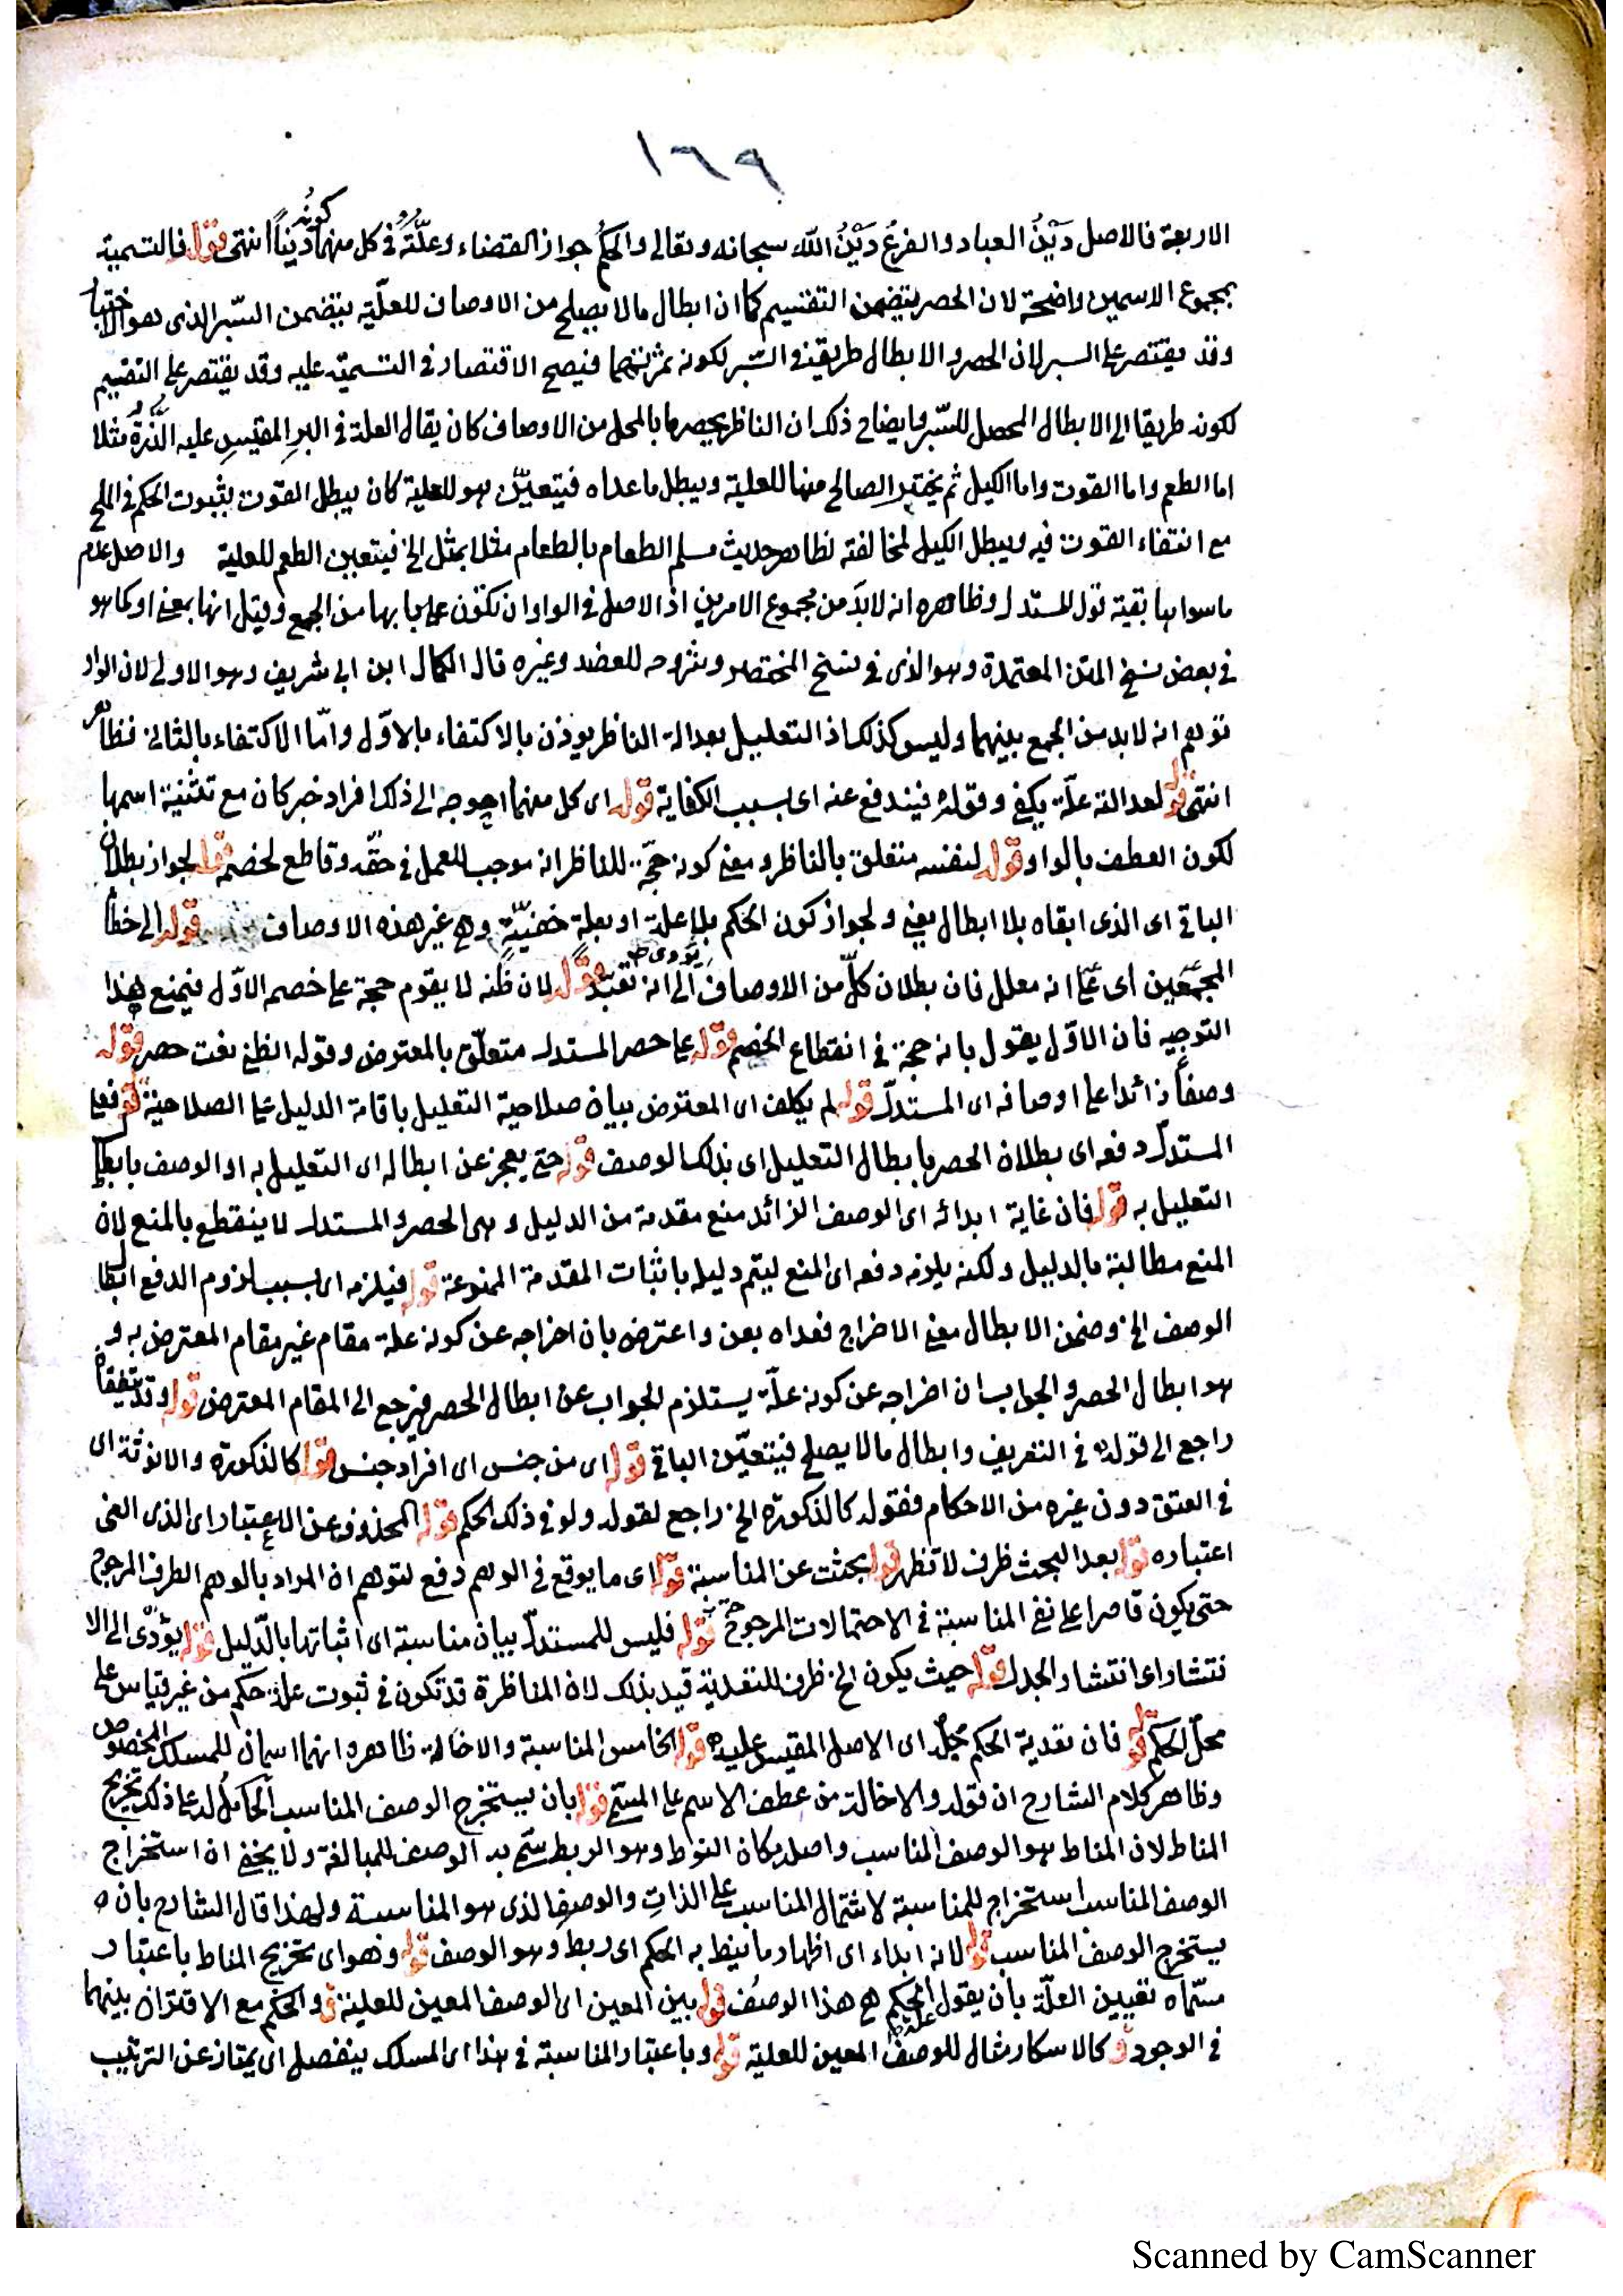 ١٦٩
الاربعة فالاصل دَيْنُ العباد والفرعُ دَيْنُ الله سبحانه وتعالى والحكمُ جواز القضاء وعلّتُه في كل منهما كونُه دَيْناً انتهى قوله فالتسمية
بمجموع الاسمين واضحة لان الحصر يتضمن التقسيم كما ان ابطال ما لا يصلح من الاوصاف للعلّية يتضمن السّبر الذى هو الاختبار
وقد يقتصر على السبر لان الحصر والابطال طريقتى السبر لكونه ثمرتهما فيصح الاقتصار في التسمية عليه وقد يقتصر على التقسيم
لكونه طريقا الى الابطال المحصل للسّبر وايضاح ذلك ان الناظر يحصر ما بالمحل من الاوصاف كان يقال العلة في البرِ المقيسِ عليه الذُّرَةُ مثلا
اما الطعم واما القوت واما الكيل ثم يختبر الصالح منها للعلية ويبطل ما عداه فيتعيّن هو للعلية كان يبطل القوت بثبوت الحكم في الملح
مع انتفاء القوت فيه ويبطل الكيل لمخالفته لظاهر حديث مسلم الطعام بالطعام مثلا بمثل الخ فيتعين الطعم للعلية والاصل عدم
ما سواها بقية قول المستدل وظاهره انه لابدّ من مجموع الامرين اذ الاصل في الواو ان تكون على بابها من الجمع وقيل انها بمعنى او كما هو
في بعض نسخ المتن المعتمدة وهو الذى في نسخ المختصر وشروحه للعضد وغيره قال الكمال ابن ابي شريف وهو الاولى لان الواو
توهم انه لابد من الجمع بينهما وليس كذلك اذ التعليل بعدالة الناظر يوذن بالاكتفاء بالاوّل وامّا الاكتفاء بالثاني فظاهر
انتهى قوله لعدالته علّة يكفى وقوله فيندفع عنه اى بسبب الكفاية قوله اى كل منهما احوجه الى ذلك افراد خبر كان مع تثنية اسمها
لكون العطف بالواو قوله لنفسه متعلق بالناظر ومعنى كونه حجّة للناظر انه موجب للعمل في حقّه وقاطع لخصمه قوله لجواز بطلان
الباقى اى الذى ابقاه بلا ابطال يعنى ولجواز كون الحكم بلا علة او بعلة خفيّة وهى غير هذه الاوصاف قوله الى خطأ
المجمعين اى على انه معلل فان بطلان كلّ من الاوصاف يؤدى الى انه تعبّد قوله لان ظنّه لا يقوم حجة على خصمه الاوّل فيمنع هذا
التوجيه فان الاوّل يقول بانه حجة في انقطاع الخصم قوله على حصر المستدل متعلّق بالمعترض وقوله الظنى نعت حصر قوله
وصفاً زائدا على اوصافه اى المستدلّ قوله لم يكلف اى المعترض بيان صلاحية التعليل باقامة الدليل على الصلاحية قوله فعلى
المستدلّ دفعه اى بطلان الحصر بابطال التعليل اى بذلك الوصف قوله حتى يعجز عن ابطاله اى التعليل به او الوصف بابطال
التعليل به قوله فان غاية ابدائه اى الوصف الزائد منع مقدمة من الدليل وهى الحصر والمستدل لا ينقطع بالمنع لان
المنع مطالبة بالدليل ولكنه يلزمه دفعه اى المنع ليتم دليله باثبات المقدمة الممنوعة قوله فيلزمه اى بسبب لزوم الدفع ابطال
الوصف الخ وضمن الابطال معنى الاخراج فعداه بعن واعترض بان اخراجه عن كونه علة مقام غير مقام المعترض به و
هو ابطال الحصر والجواب ان اخراجه عن كونه علّة يستلزم الجواب عن ابطال الحصر فيرجع الى المقام المعترض قوله وقد يتفقان
راجع الى قوله في التعريف وابطال ما لا يصلح فيتعيّن الباقى قوله اى من جنس اى افراد جنس قوله كالذكورة والانوثة اى
في العتق دون غيره من الاحكام فقوله كالذكورة الخ راجع لقوله ولو في ذلك الحكم قوله المحذوف عن الاعتبار اى الذى الغى
اعتباره قوله بعد البحث ظرف لا تظهر قوله بحثت عن المناسبة قوله اى ما يوقع في الوهم دفع لتوهم ان المراد بالوهم الطرف المرجوح
حتى يكون قاصرا على نفى المناسبة في الاحتمالات المرجوحة قوله فليس للمستدلّ بيان مناسبة اى اثباتها بالدّليل قوله يؤدّى الى الا
نتشار اى انتشار الجدل قوله حيث يكون الخ ظرف للتعدية قيد بذلك لان المناظرة قد تكون في ثبوت علة حكم من غير قياس على
محلّ الحكم قوله فان تعدية الحكم محلّه اى الاصل المقيس عليه قوله الخامس المناسبة والاخالة ظاهره انهما اسمان للمسلك المخصوص
وظاهر كلام الشارح ان قوله والاخالة من عطف الاسم على المسمّى قوله بان يستخرج الوصف المناسب الحامل له على ذلك تخريج
المناط لان المناط هو الوصف المناسب واصله مكان النوط وهو الربط سمّى به الوصف للمبالغة ولا يخفى ان استخراج
الوصف المناسب استخراج للمناسبة لاشتمال المناسب على الذاتِ والوصفِ الذى هو المناسبة ولهذا قال الشارح بان
يستخرج الوصف المناسب قوله لانه ابداء اى اظهار ما نيط به الحكم اى ربط وهو الوصف قوله وهو اى تخريج المناط باعتبار
مسمّاه تعيين العلّة بان يقول علة الحكم هى هذا الوصفُ قوله بين المعين اى الوصف المعين للعلية ق والحكم مع الاقتران بينهما
في الوجود ق كالاسكار مثال للوصف المعين للعلية قوله وباعتبار المناسبة في هذا اى المسلك ينفصل اى يمتاز عن الترتيب
Scanned by CamScanner